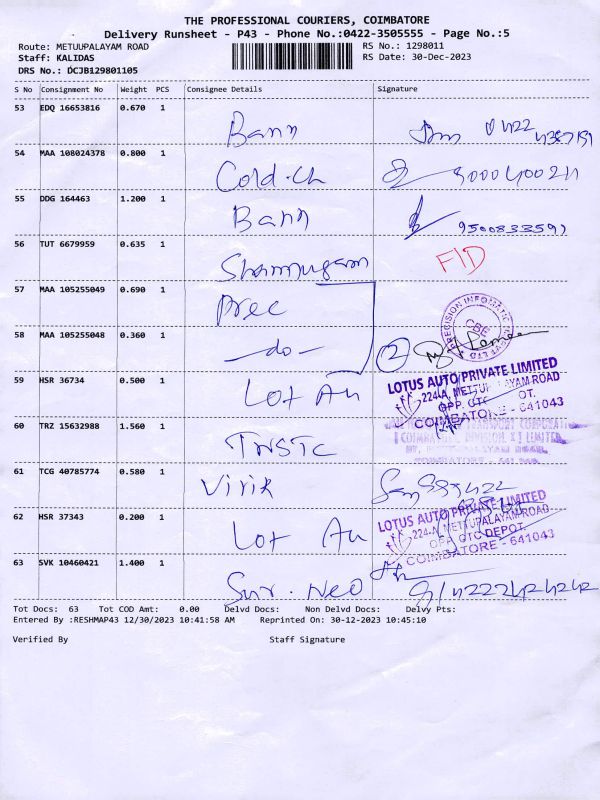 THE PROFESSIONAL COURIERS, COIMBATORE
Delivery Runsheet - P43 - Phone No.:0422-3505555 - Page No.:5
Route: METUUPALAYAM ROAD RS No.: 1298011
Staff: KALIDAS RS Date: 30-Dec-2023
DRS No.: DCJB129801105
S No Consignment No Weight PCS Consignee Details Signature
53 EDQ 16653816 0.670 1 Bann
54 MAA 108024378 0.800 1 Cold.Ch
55 DDG 164463 1.200 1 Bann 9500833591
56 TUT 6679959 0.635 1 Shanmugam FID
57 MAA 105255049 0.690 1 Prec
PRECISION CBE
58 MAA 105255048 0.360 1 -do- 2
59 HSR 36734 0.500 1 Lot Au
LOTUS AUTO PRIVATE LIMITED
224-A, METTUPALAYAM ROAD
OPP. GTC OT.
COIMBATORE - 641043
60 TRZ 15632988 1.560 1 TNSTC
61 TCG 40785774 0.580 1 Virik
62 HSR 37343 0.200 1 Lot Au
LOTUS AUTO PRIVATE LIMITED
224-A, METTUPALAYAM ROAD
OPP. GTC DEPOT,
COIMBATORE - 641043
63 SVK 10460421 1.400 1 Sur. Neo
Tot Docs: 63 Tot COD Amt: 0.00 Delvd Docs: Non Delvd Docs: Delvy Pts:
Entered By :RESHMAP43 12/30/2023 10:41:58 AM Reprinted On: 30-12-2023 10:45:10
Verified By Staff Signature